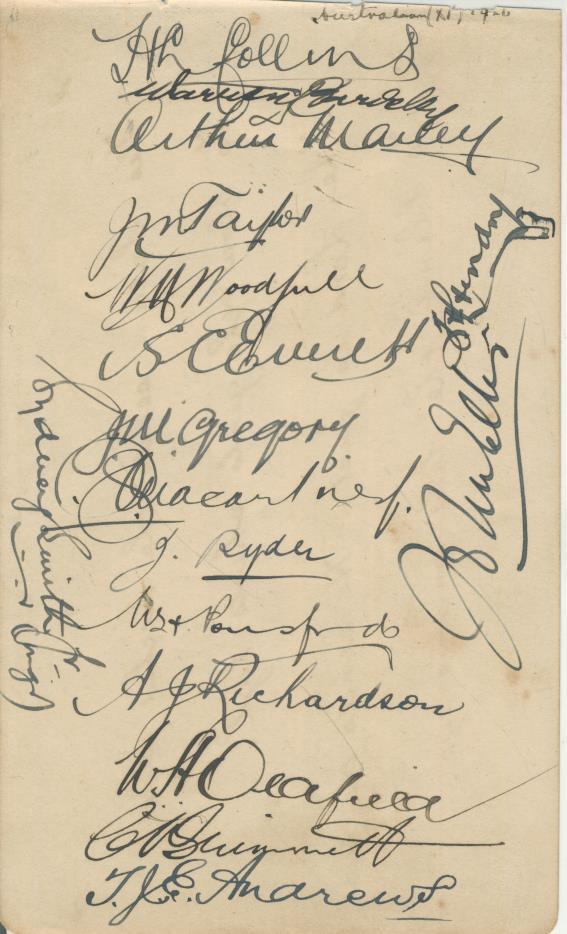 Australian (XI) 1926
HL Collins
Warren Bardsley
Arthur Mailey
JM Taylor
WM Woodfull
S C Everett
JM Gregory
C Macartney.
J. Ryder
WH Ponsford
A J Richardson
WA Oldfield
C V Grimmett
T. J. E. Andrews
Sydney Smith Jr
J L Ellis
H L Hendry